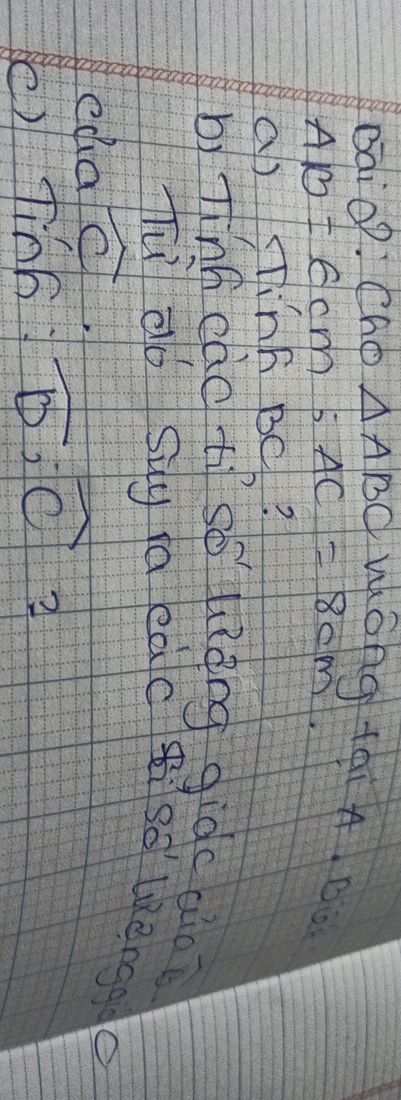 Bài 8: Cho ΔABC vuông tại A. Biết
AB = 6cm; AC = 8cm.
a) Tính BC?
b) Tính các tỉ số lượng giác của
Từ đó suy ra các tỉ số lượng giác
của Ĉ.
c) Tính: B̂; Ĉ?